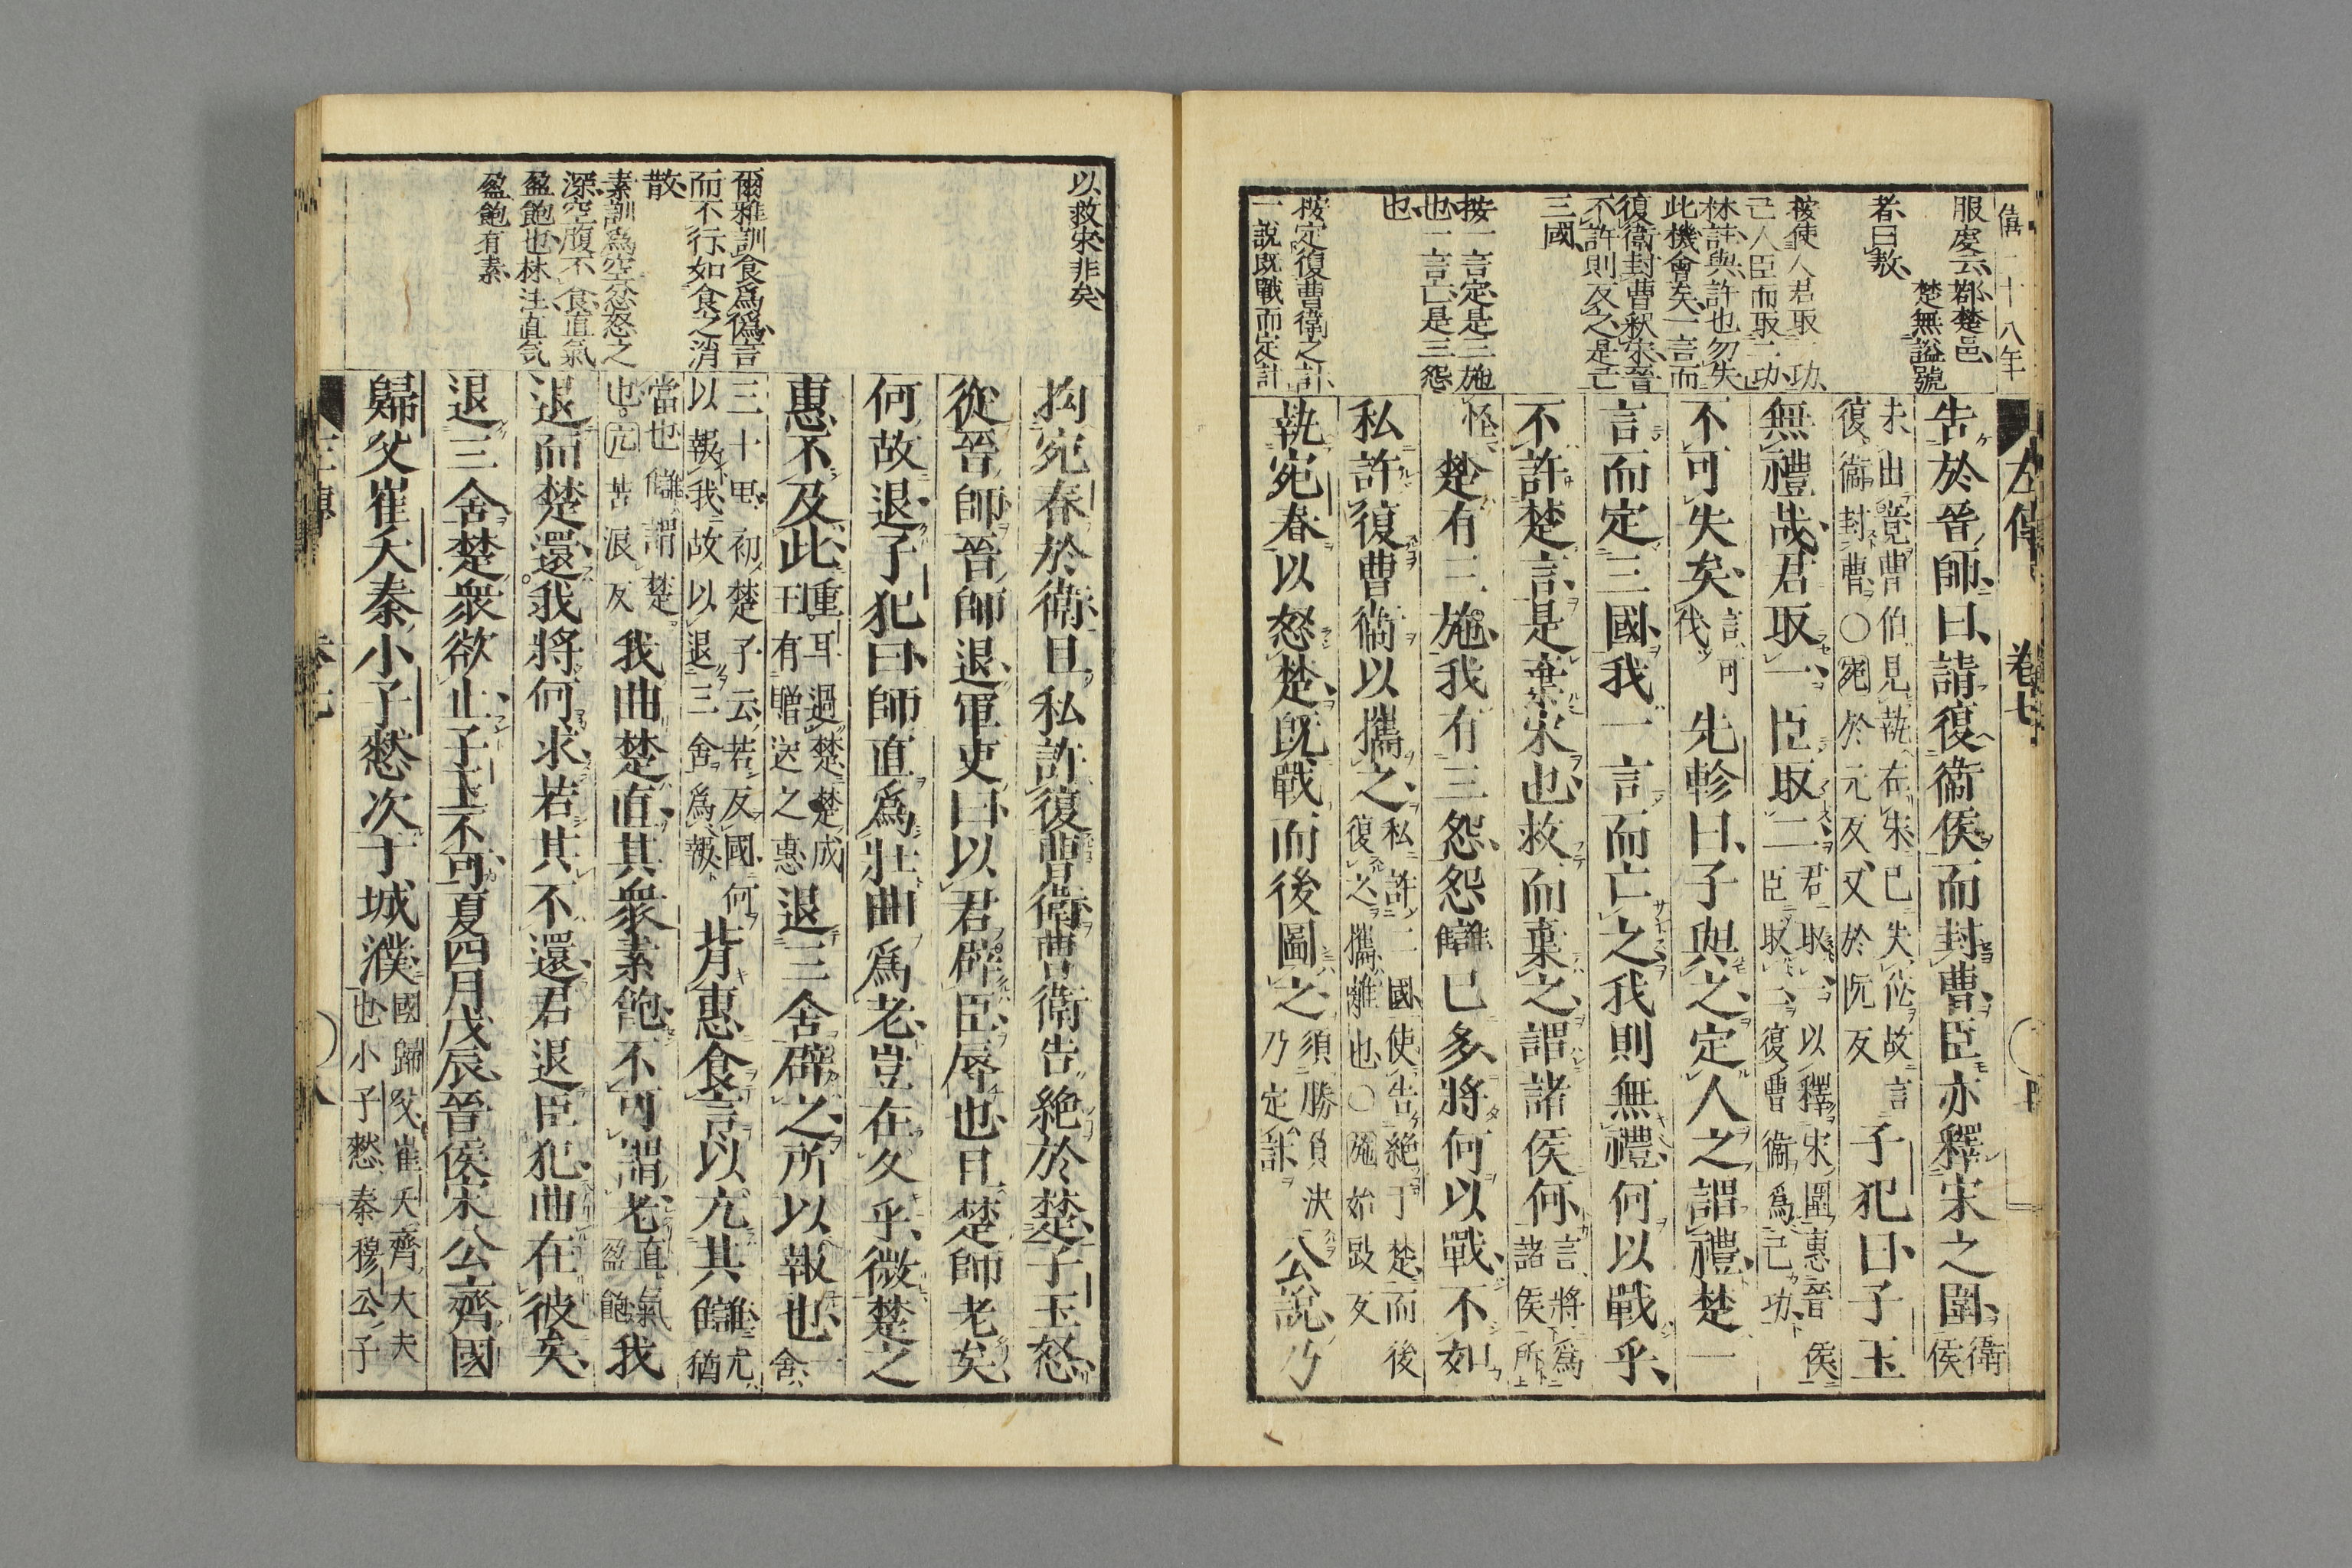 僖二十八年
服虔云、鄀楚邑、
楚無謚號
者、曰敖、
按使人君取一功、
己人臣而取二功、
林註、與、許也、勿失
此機會矣、一言而
復衛封曹釈宋、晉
不許則反之、是亡
三國、
按一言定、是三施
也、一言亡、是三怨
也、
按定復曹衛之計、
一說既戰而定計
左傳 卷七
告於晉師曰、請復衛侯而封曹、臣亦釋宋之圍、衛侯
未出竟、曹伯見執在宋、已失位、故言
復衛封曹、○宛於元反、又於阮反
子犯曰、子玉
無禮哉、君取一、臣取二、君取一、以釋宋圍、惠晉侯
臣取二、復曹衛爲己功、
不可失矣、言可
伐
先軫曰、子與之、定人之謂禮、楚一
言而定三國、我一言而亡之、我則無禮、何以戰乎、
不許楚言、是棄宋也、救而棄之、謂諸侯何、言將爲
諸侯所
怪、
楚有三施、我有三怨、怨讎已多、將何以戰、不如
私許復曹衛以攜之、私許二國、使告絕于楚、而後
復之、攜、離也、○施始豉反
執宛春以怒楚、既戰而後圖之、須勝負決
乃定計、
公說、乃
以救宋、非矣、
爾雅訓食爲僞、言
而不行、如食之消
散、
素訓爲空、忿怒之
深、空腹不食、直氣
盈飽也、林注、直気
盈飽有素、
拘宛春於衛、且私許復曹衛、曹衛告絕於楚、子玉怒、
從晉師、晉師退、軍吏曰、以君辟臣、辱也、且楚師老矣、
何故退、子犯曰、師直爲壯、曲爲老、豈在久乎、微楚之
惠不及此、重耳過楚、楚成
王有贈送之惠
退三舍辟之、所以報也、一舍、
三十里、初楚子云、若反國、何
以報我、故以退三舍爲報、
背惠食言、以亢其讎、亢猶
當也、讎、謂楚
也、○亢苦浪反
我曲楚直、其衆素飽、不可謂老、直氣
盈飽
我
退而楚還、我將何求、若其不還、君退臣犯、曲在彼矣、
退三舍、楚衆欲止、子玉不可、夏四月戊辰、晉侯宋公齊國
歸父崔夭秦小子憖次于城濮、國歸父、崔夭、齊大夫
也、小子憖、秦穆公子
左傳 卷七 八